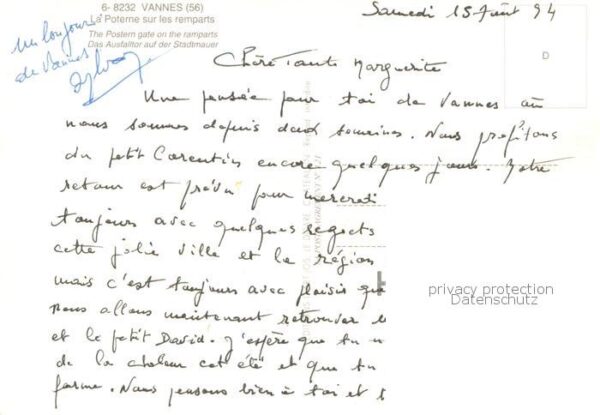 6- 8232 VANNES (56)
La Poterne sur les remparts
The Postern gate on the ramparts
Das Ausfalltor auf der Stadtmauer
Un bonjour
de Vannes
Samedi 15 Août 94
D
Chère Tante Marguerite
Une pensée pour toi de Vannes où
nous sommes depuis deux semaines. Nous profitons
du petit Corentin encore quelques jours. Notre
retour est prévu pour mercredi
toujours avec quelques regrets
cette jolie ville et la région
mais c'est toujours avec plaisir que
nous allons maintenant retrouver
et le petit David. J'espère que tu
de la chaleur cet été et que tu
forme. Nous pensons bien à toi et
privacy protection
Datenschutz